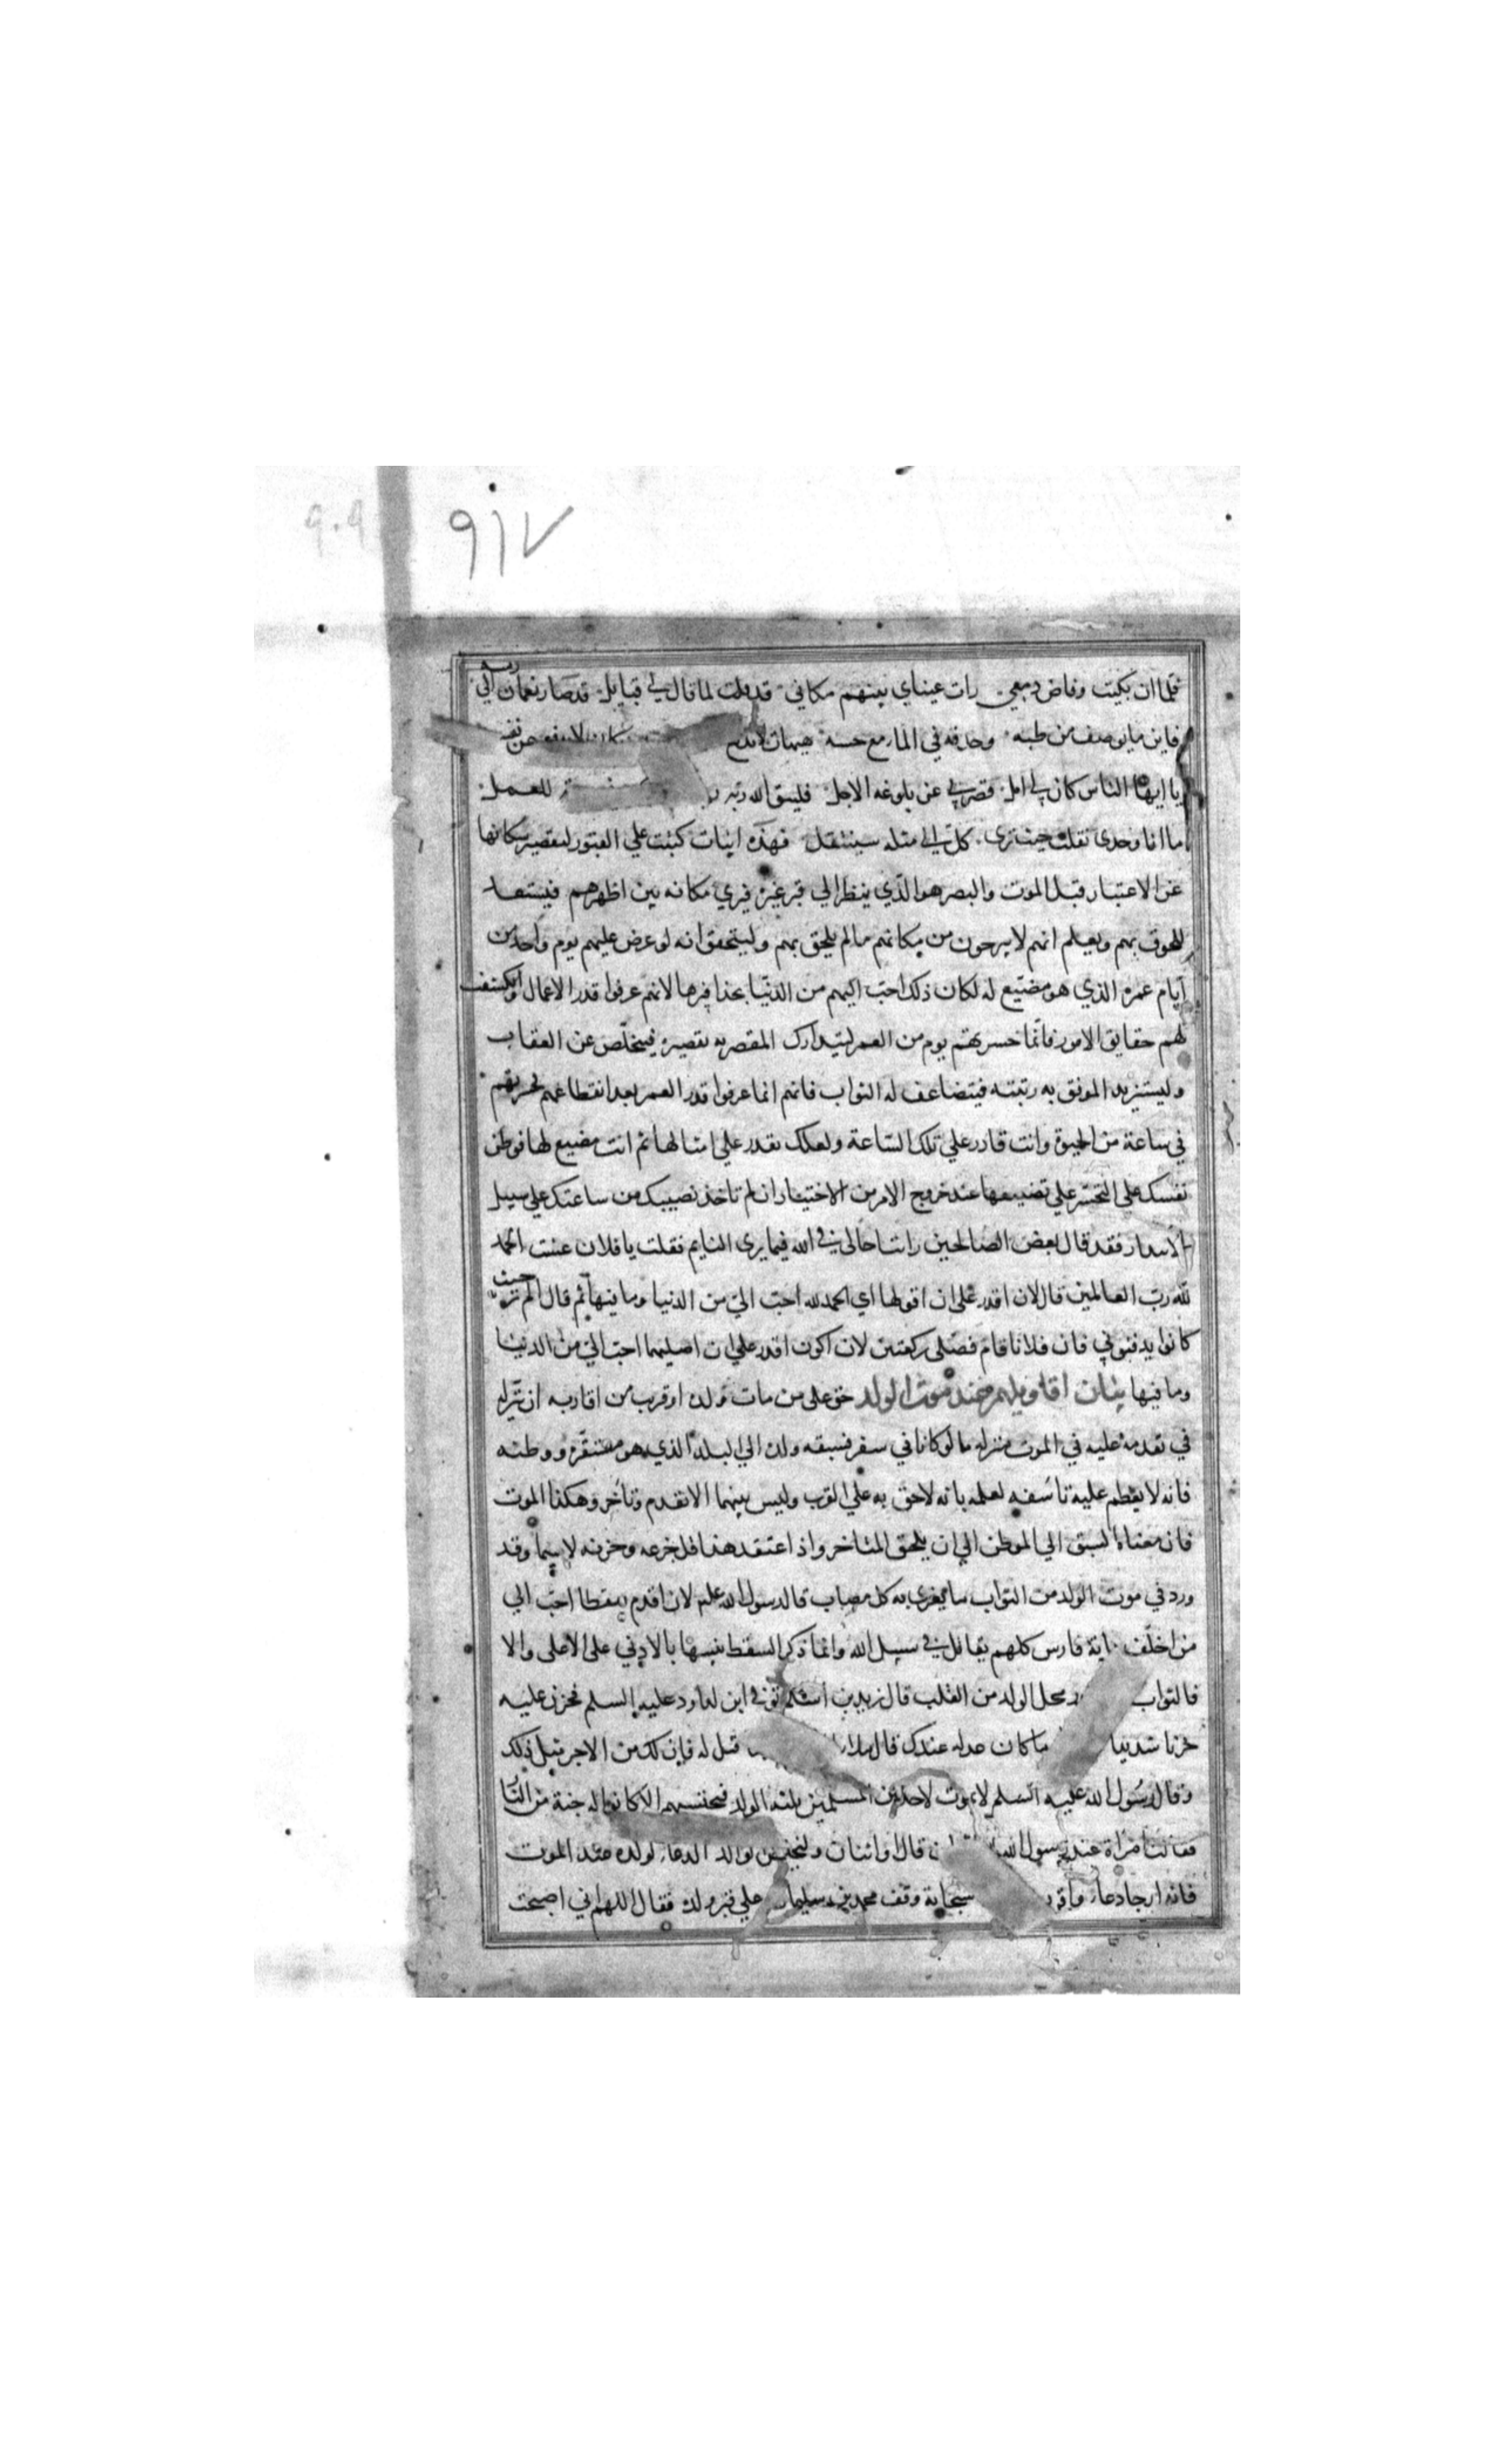 ٩١٧
٩٠٩
فلما ان بكيت وفاض دمعي رات عيناي بينهم مكاني قد قلت لما قال لي قبايل قد صار نعمان الي رمسه
فاين ما يوصف من طبه وحذقه في الما مع حسه هيهات لا يدفع
يا ايها الناس كان لي امل قصر بي عن بلوغه الاجل فليتق الله ربه للعمل
ما انا وحدي نقلت حيث تري كل الي مثله سينتقل فهذه ابيات كتبت علي القبور لتقصير سكانها
عن الاعتبار قبل الموت والبصير هو الذي ينظر الي قبر غيره فيري مكانه بين اظهرهم فيستعد
للحوق بهم ويعلم انهم لا يبرحون من مكانهم ما لم يلحق بهم وليتحقق انه لو عرض عليهم يوم واحد من
ايام عمره الذي هو مضيع له لكان ذلك احب اليهم من الدنيا بحذافيرها لانهم عرفوا قدر الاعمال وانكشفت
لهم حقايق الامور فانما حسرتهم يوم من العمر ليتدارك المقصر به تقصيره فيتخلص عن العقاب
وليستزيد الموفق به رتبته فيتضاعف له الثواب فانهم انما عرفوا قدر العمر بعد انقطاعهم فحسرتهم
في ساعة من الحيوة وانت قادر علي تلك الساعة ولعلك تقدر علي امثالها ثم انت مضيع لها فوطن
نفسك علي التحسر علي تضييعها عند خروج الامر من الاختيار ان لم تاخذ نصيبك من ساعتك علي سبيل
الابتدار فقد قال بعض الصالحين رايت اخا لي في الله فيما يري النايم فقلت يا فلان عشت الحمد
لله رب العالمين قال لان اقدر علي ان اقولها اي الحمد لله احب الي من الدنيا وما فيها ثم قال الم تر حيث
كانوا يدفنوني فان فلانا قام فصلي ركعتين لان اكون اقدر علي ان اصليهما احب الي من الدنيا
وما فيها بيان اقاويلهم عند موت الولد حق علي من مات ولده او قريب من اقاربه ان ينزله
في تقدمه عليه في الموت منزله ما لو كانا في سفر فسبقه ولده الي البلد الذي هو مستقره ووطنه
فانه لا يعظم عليه تاسفه لعلمه بانه لاحق به علي القرب وليس بينهما الا تقدم وتاخر وهكذا الموت
فان معناه السبق الي الموطن الي ان يلحق المتاخر واذا اعتقد هذا قل جزعه وحزنه لا سيما وقد
ورد في موت الولد من الثواب ما يعزي به كل مصاب قال رسول الله عليه لان اقدم سقطا احب الي
من اخلف ماية فارس كلهم يقاتل في سبيل الله وانما ذكر السقط تنبيها بالادني علي الاعلي والا
فالثواب محل الولد من القلب قال زيد بن اسلم توفي ابن لداود عليه السلم فحزن عليه
حزنا شديدا ما كان عدله عندك قال ملا قيل له فان لك من الاجر مثل ذلك
وقال رسول الله عليه السلم لا يموت لاحد من المسلمين ثلثه الولد فيحتسبهم الا كانوا له جنة من النار
فقالت امراة عند رسول الله قال او اثنان وليخلص الوالد الدعاء لولده عند الموت
فانه ارجا دعاء واقر سبحابة وقف محمد بن سليمان علي قبر ولده فقال اللهم اني اصبحت